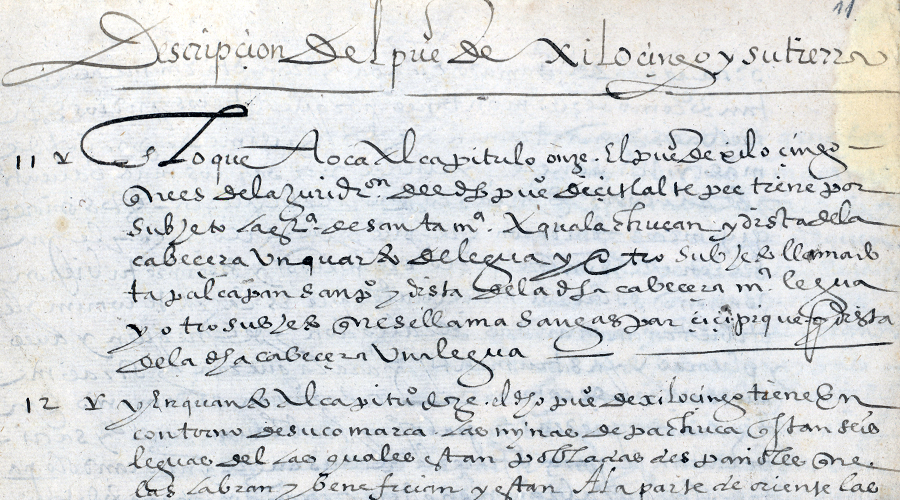 11
Descripçion Del pue De Xilocingo y su tierra
11 Y Lo que Toca Al capitulo onze. El pue De xilocingo
ques de la Juridon. de eDho pue De citlaltepec tiene por
Subjeto la esta. de santa ma. Xiqualachucan y dista de la
cabecera Un quarto de legua y Otro Subjeto llamado
tapalcapan san po. y dista de la dha cabecera ma. legua
y otro subjeto que se llama san gaspar dista
de la dha cabecera Una legua
12 Y Y En quanto Al capitu doze. el dho pue De xilocingo tiene En
contorno de su comarca las mynas de pachuca questan seis
leguas del las quales estan pobladas des pañoles que
las labran y benefician y estan A la parte de oriente las